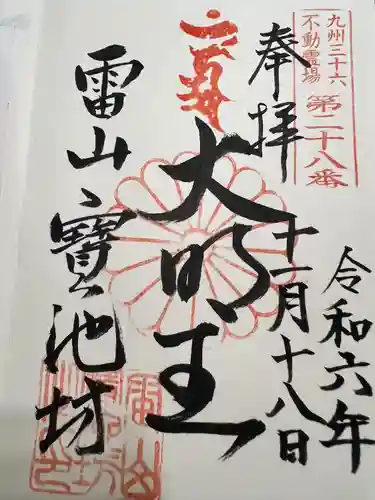 九州三十六
不動霊場
第二十八番
奉拝
令和六年
十一月十八日
大明王
雷山寶池坊